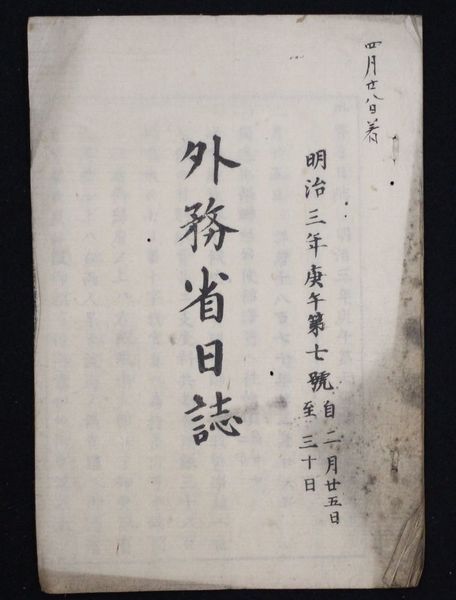 四月廿八日着
明治三年庚午第七號 自二月廿五日
至三十日
外務省日誌